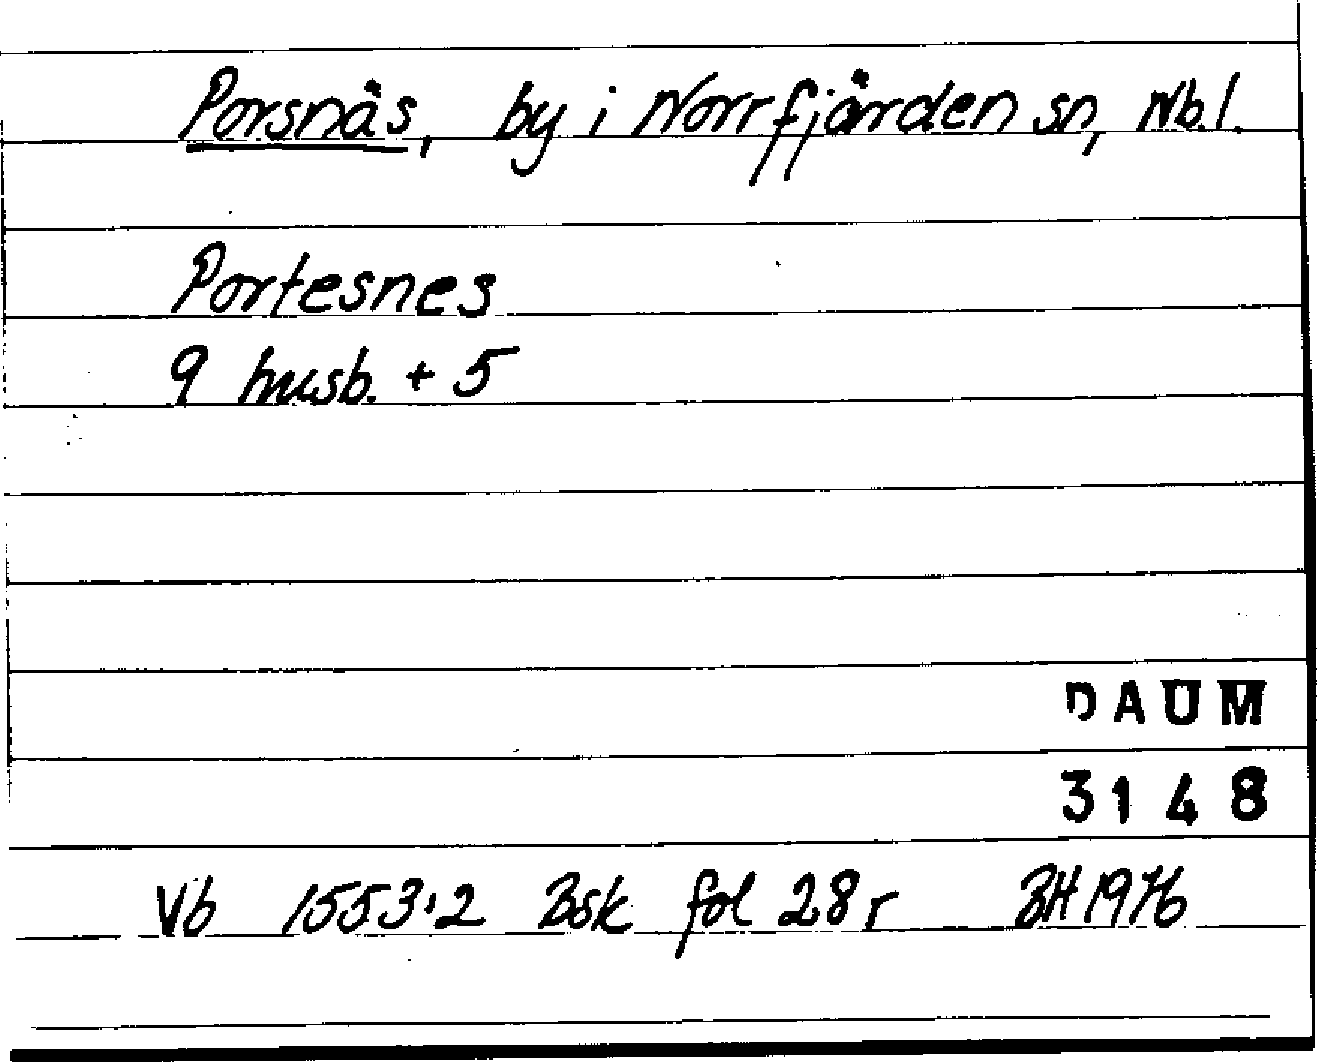 Porsnäs, by i Norrfjärden sn, Nb.l.
Portesnes
9 husb. + 5
DAUM
3148
Vb 1553:2 Bsk fol 28 r BH 1976